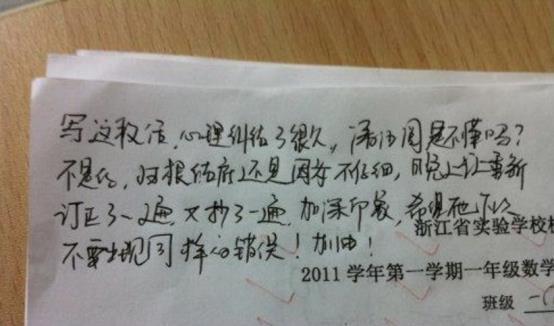 写这段话,心理纠结了很久,潘沽同是不懂吗?
不是的,归根结底还是因为不仔细,昨晚上让重新
订正了一遍又抄了一遍,加深印象,希望他下次
不要出现同样的错误!加油!
浙江省实验学校
2011 学年第一学期一年级数学
班级 二